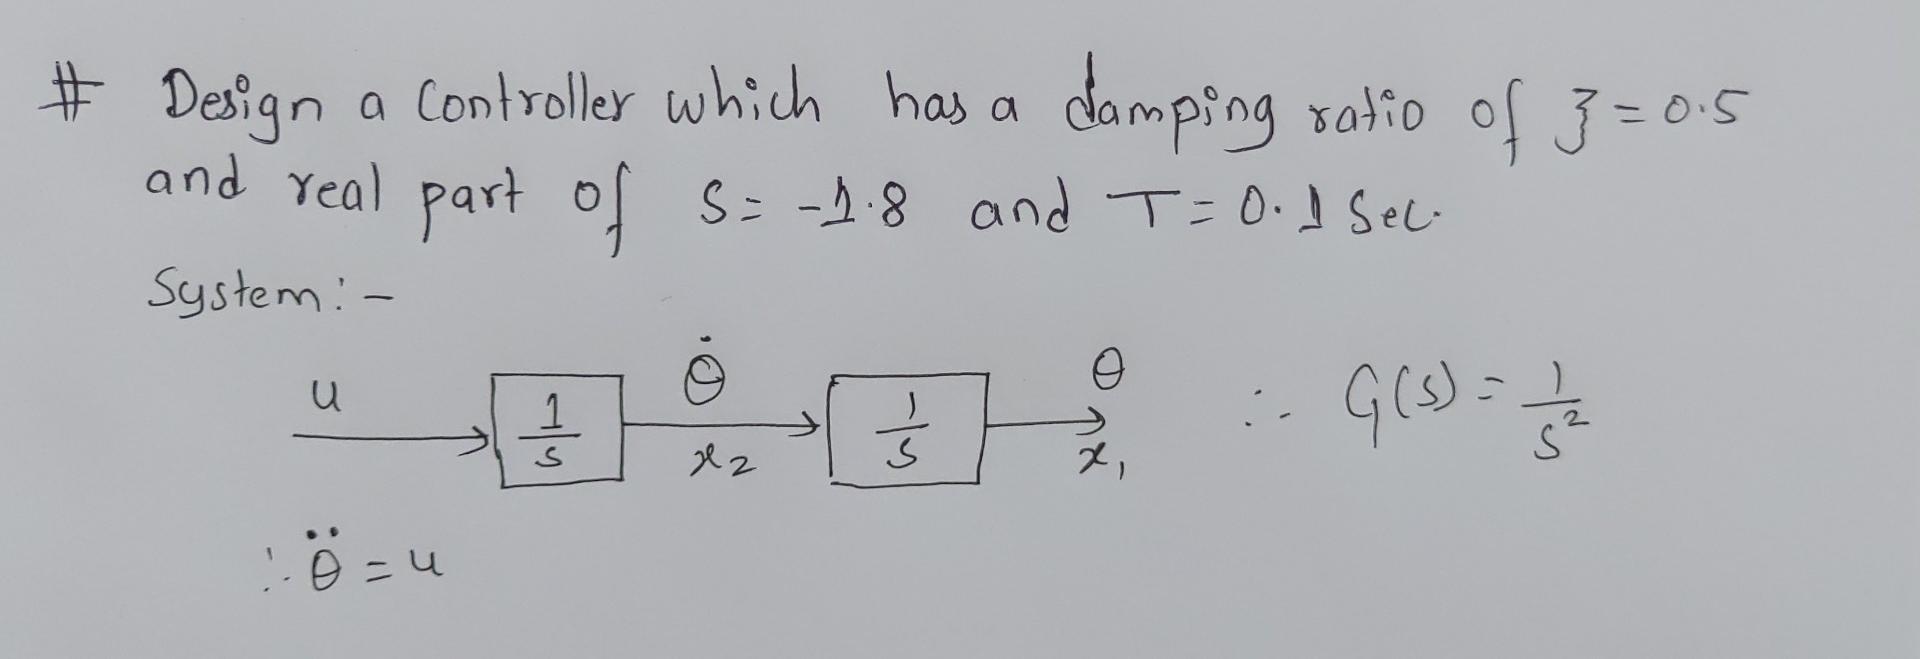 # Design a Controller which has a damping ratio of ξ = 0.5
and real part of S = -1.8 and T = 0.1 Sec.
System :-
u 1/s θ̇ x₂ 1/s θ x₁ ∴ G(s) = 1/s²
∴ θ̈ = u